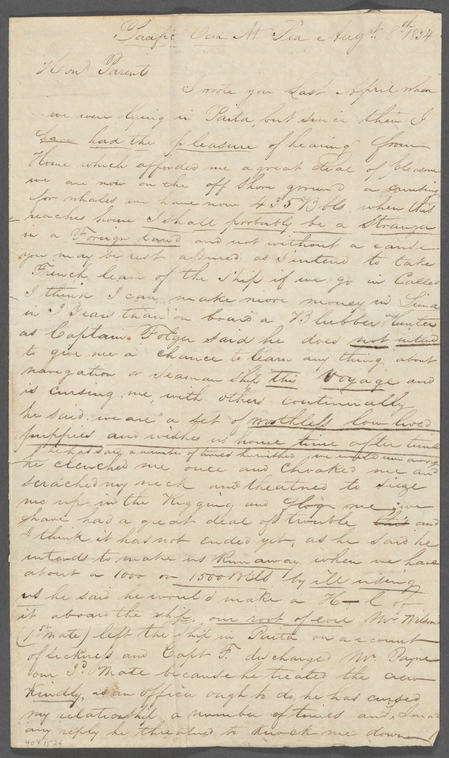 Pacific Ocean At Sea Augt 8th 1834
Hond Parents
I wrote you last April when
we were lying in Paita, but since then I
have had the pleasure of hearing from
Home which afforded me a great deal of pleasure
we are now on the off Shore ground a cruising
for whales, we have now 435 Bbls when this
reaches home I shall probably be a Stranger
in a Foreign land and not without a cause
you may be rest assured as I intend to take
French leave of the Ship if we go in Callao
I think I can make more money in Lima
in 1 Year than on board a Blubber Hunter
as Captain Folger said he does not intend
to give me a chance to learn any thing about
navigation or seaman ship this Voyage and
is cursing me with others continually
he said we are a set of worthless low lived
puppies and wishes us home time after time
he has say a number of times he wished we would run away
he clenched me once and choaked me and
scrached my neck and threatned to seize
me up in the Rigging and flog me, we
have had a great deal of trouble and
I think it has not ended yet, as he said he
intends to make us Run away when we have
about a 1000 or 1500 Bbls by ill using
us he said he would make a H-l of
it aboard the ship, our root of evil Mr Wilson
(1st Mate) left the ship in Paita on account
of sickness and Capt F. discharged Mr Payne
our 2d Mate because he treated the crew
Kindly, as an officer ough to do, he has cursed
my relationship a number of times and
any reply he threatned to knock me down